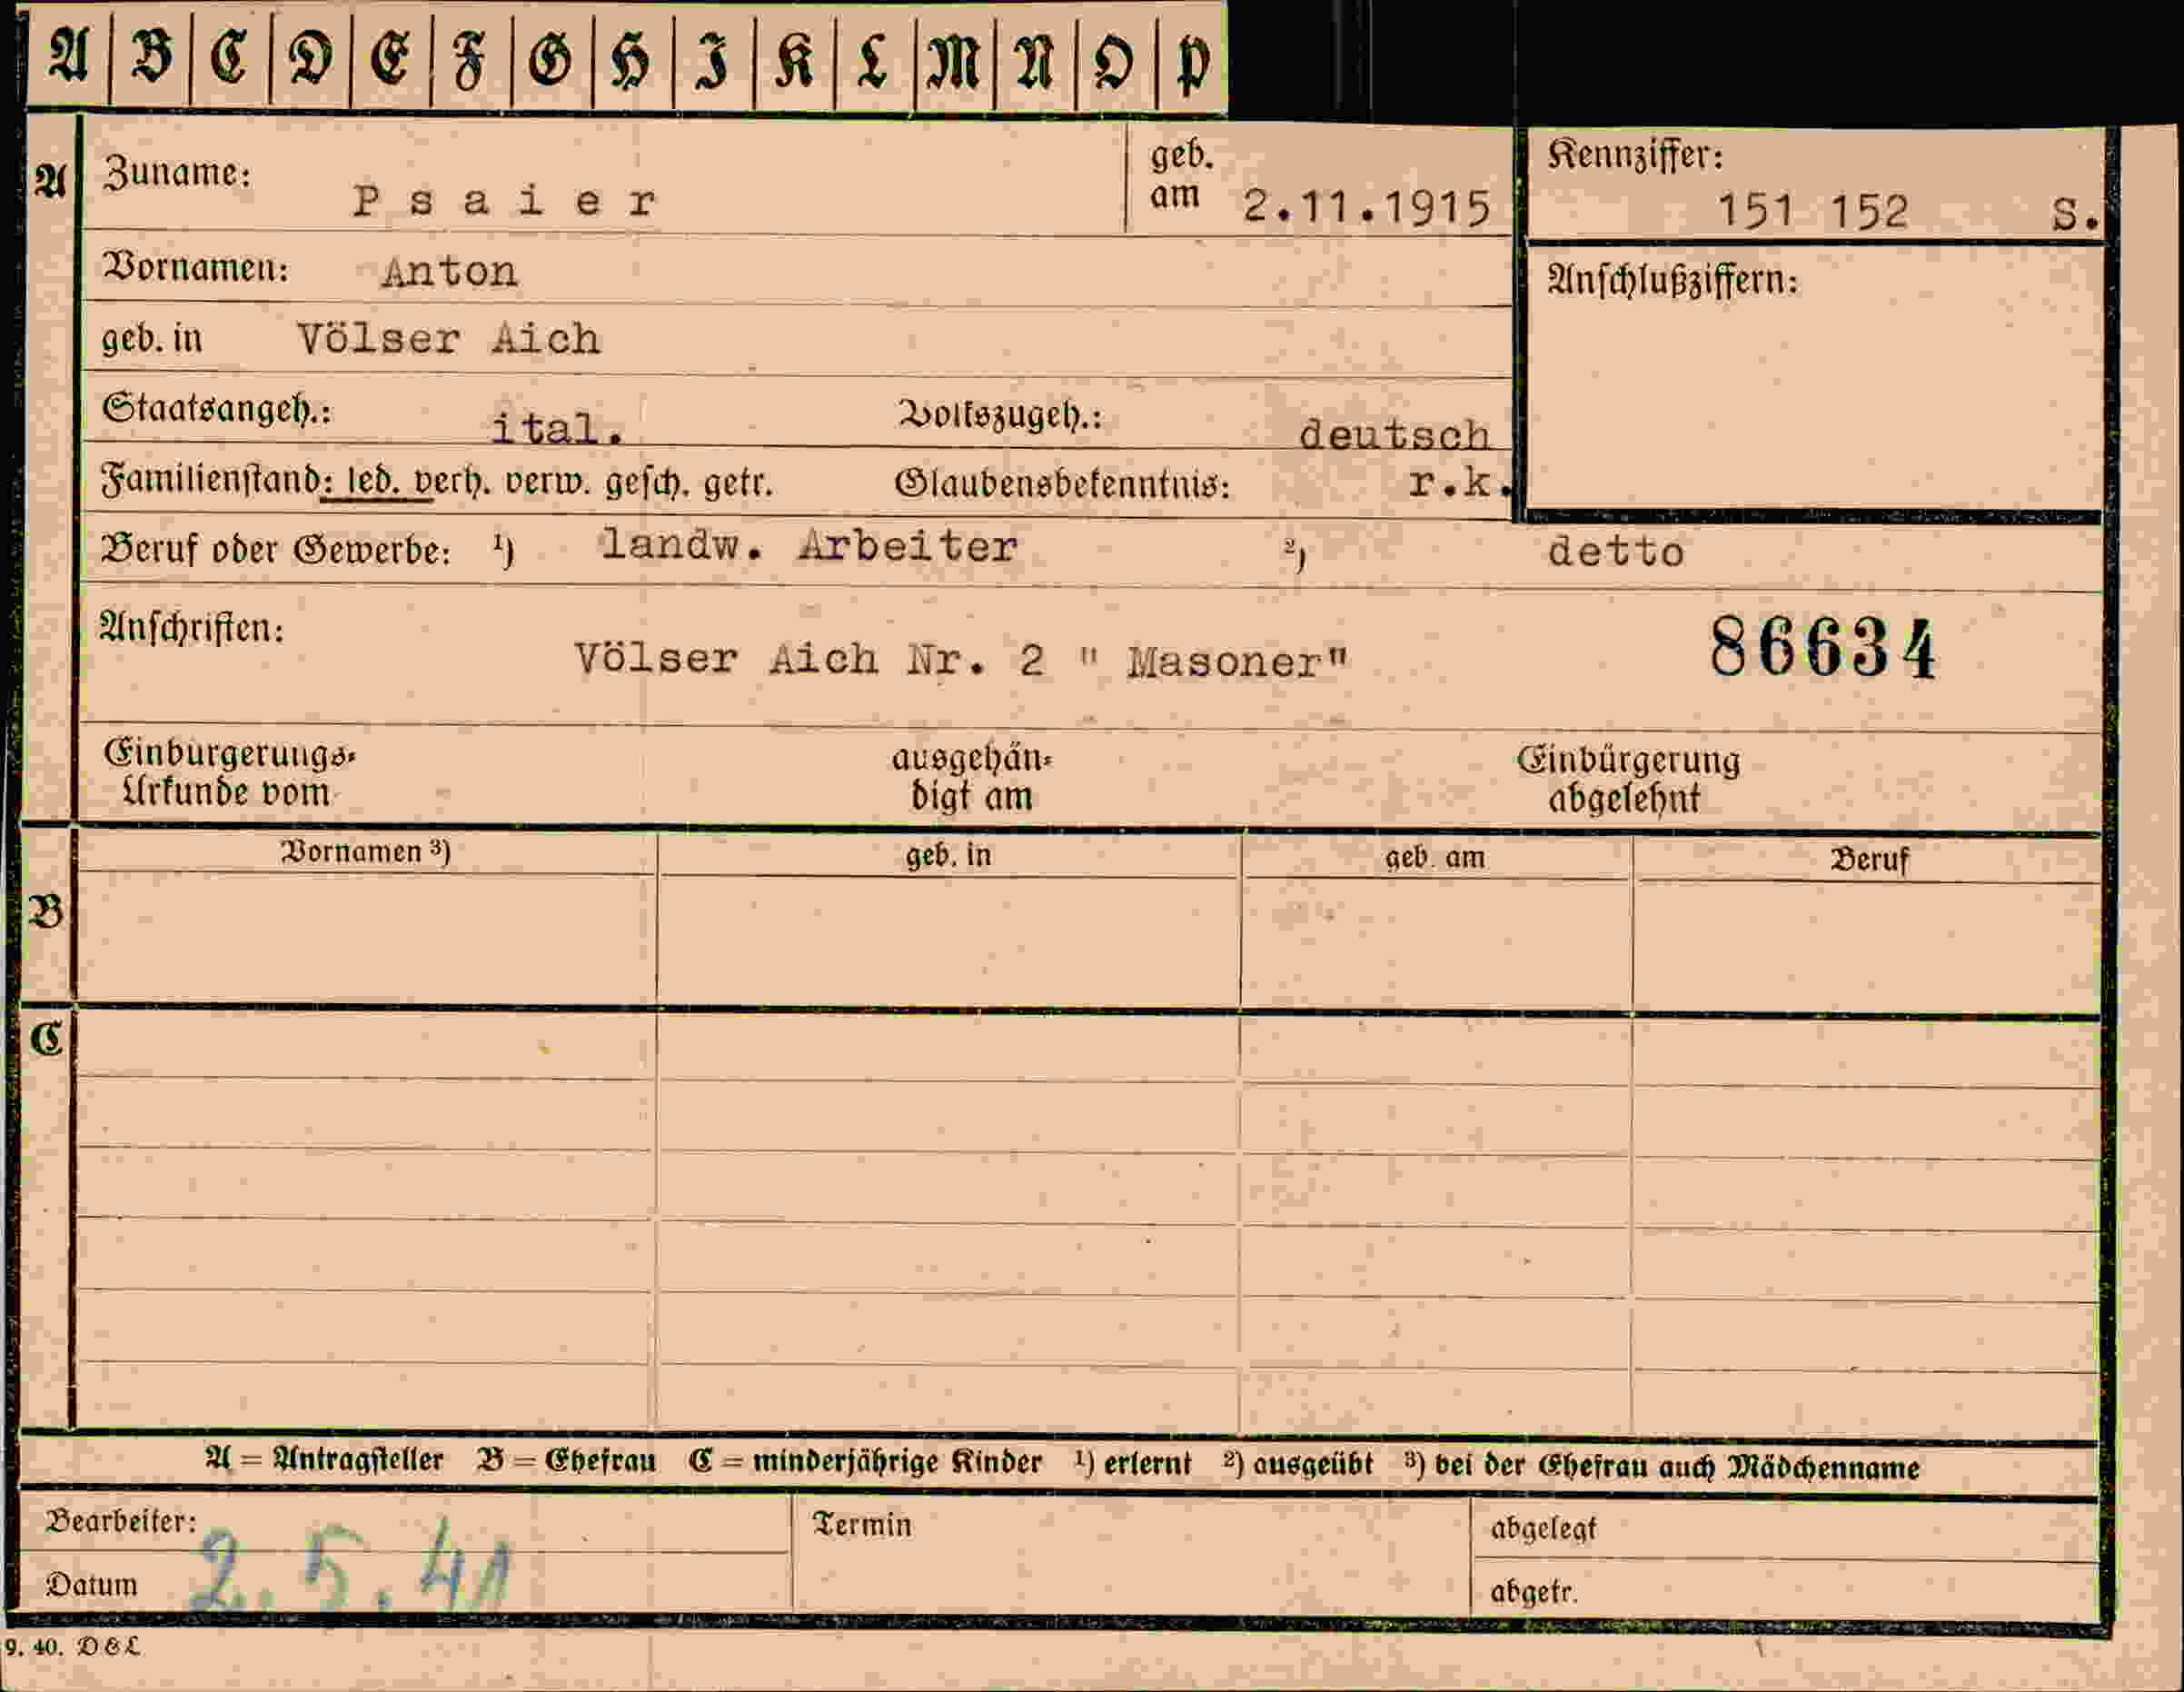 A B C D E F G H I K L M N O P
A Zuname: Psaier geb. am 2.11.1915 Kennziffer: 151 152 S.
Vornamen: Anton Anschlußziffern:
geb. in Völser Aich
Staatsangeh.: ital. Volkszugeh.: deutsch
Familienstand: led. verh. verw. gesch. getr. Glaubensbekenntnis: r.k.
Beruf oder Gewerbe: ¹) landw. Arbeiter ²) detto
Anschriften: Völser Aich Nr. 2 " Masoner" 86634
Einbürgerungs- ausgehän- Einbürgerung
Urkunde vom digt am abgelehnt
Vornamen ³) geb. in geb. am Beruf
B
C
A = Antragsteller B = Ehefrau C = minderjährige Kinder ¹) erlernt ²) ausgeübt ³) bei der Ehefrau auch Mädchenname
Bearbeiter: Termin abgelegt
Datum 2.5.41 abgetr.
9. 40. D&L